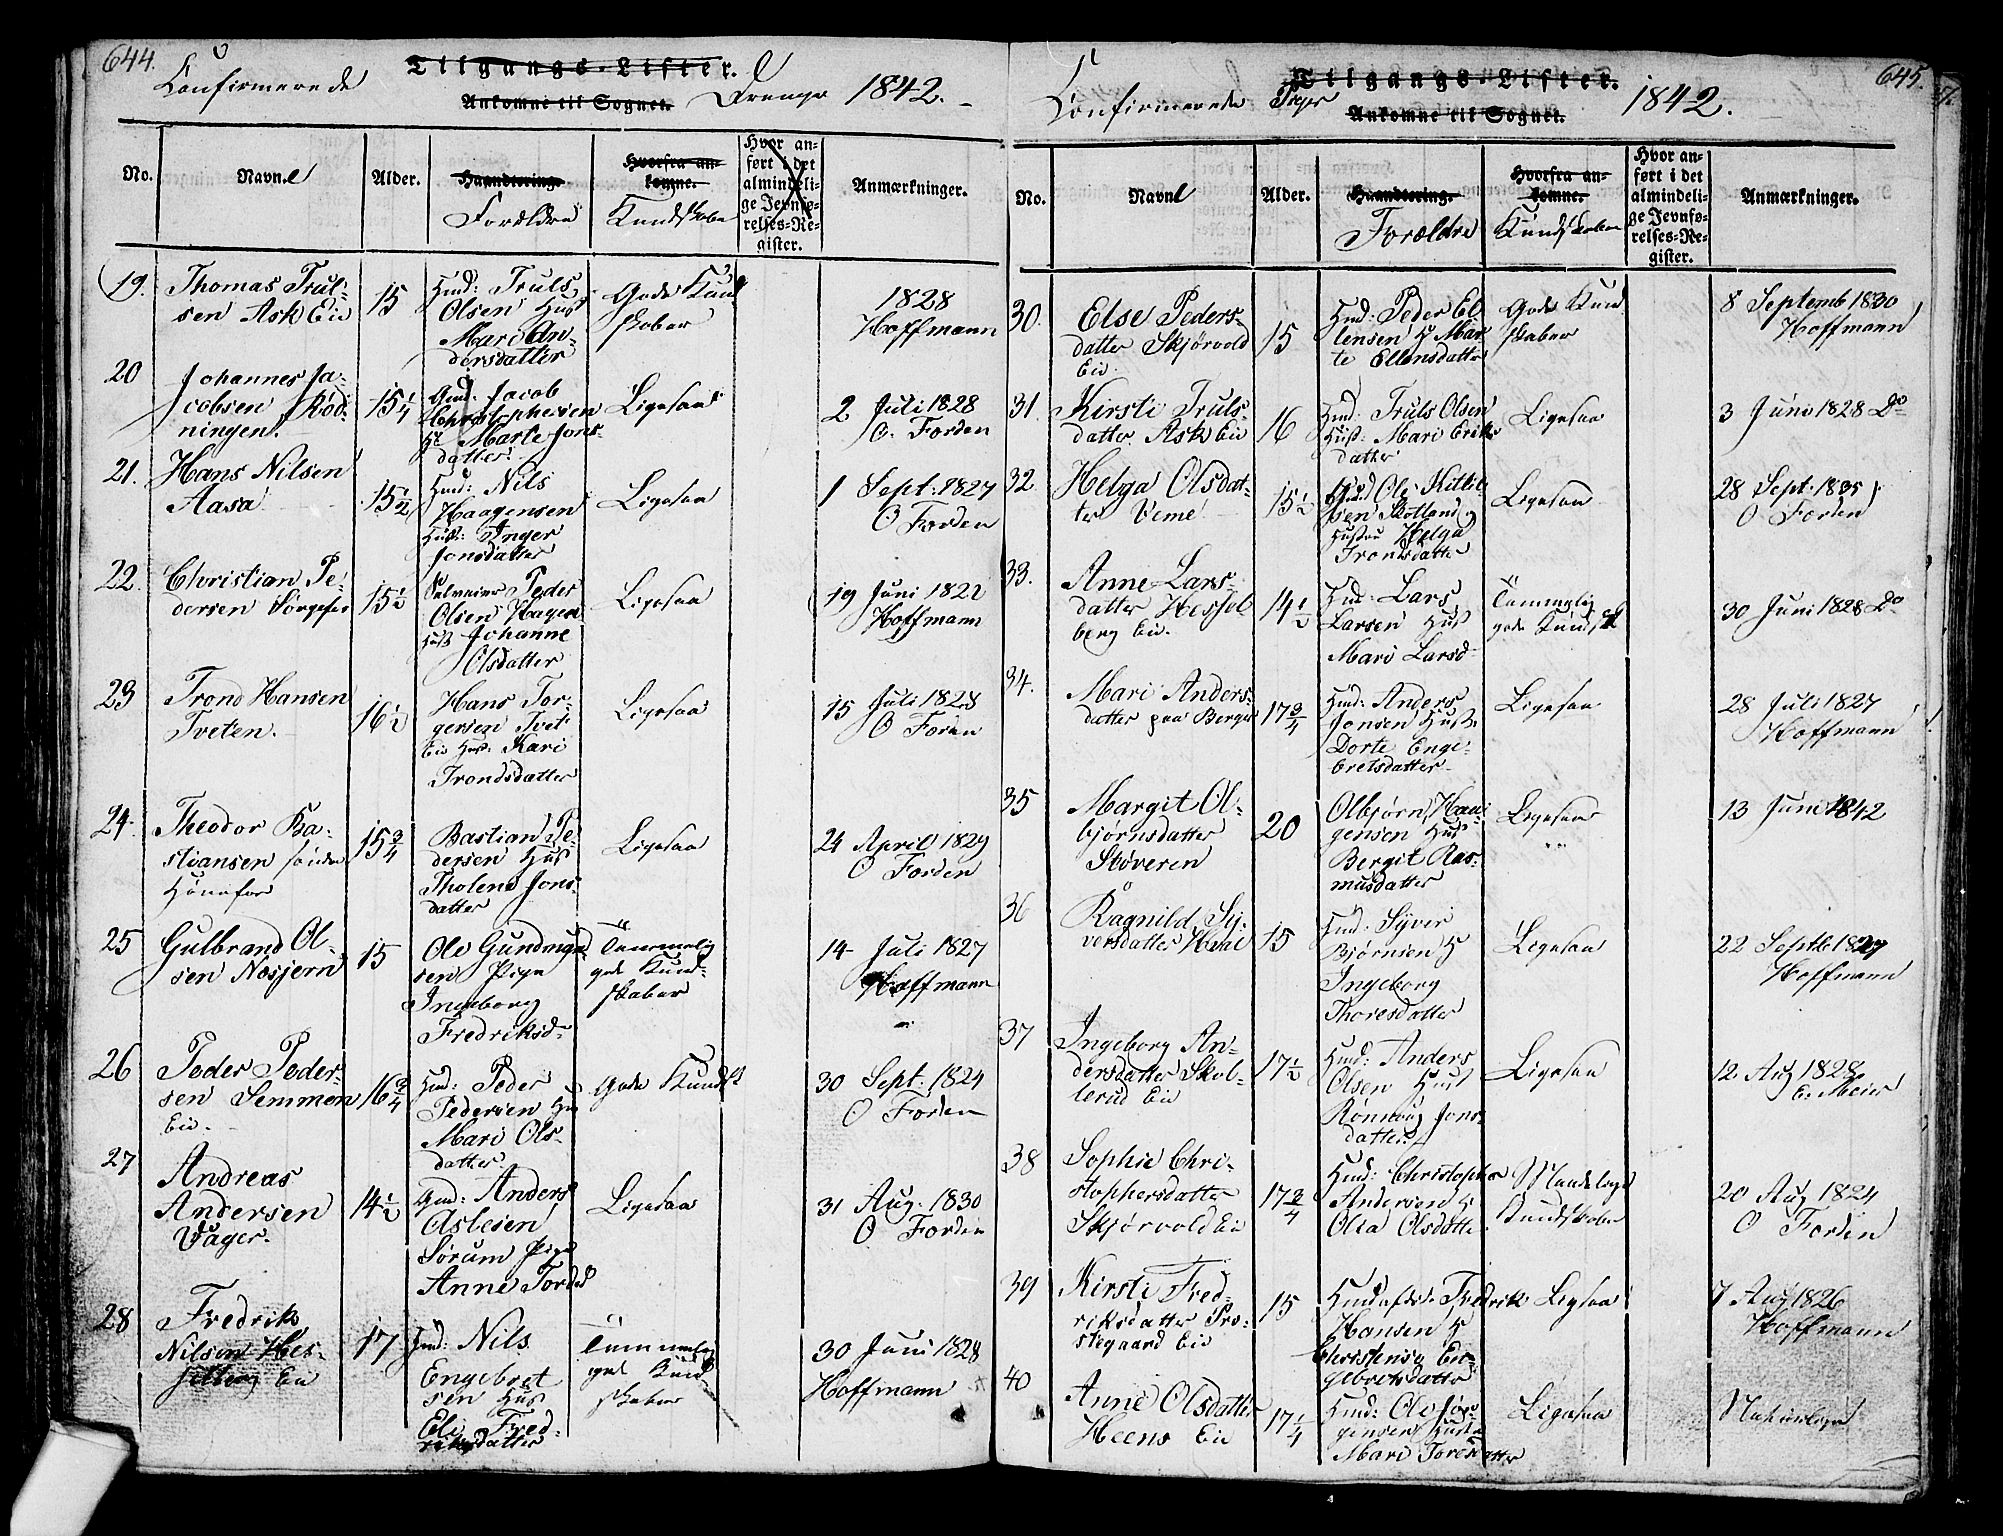 644.
Confirmerede
Tilgangs-Lister.
Ankomne til Sognet.
Drenge 1842.
No.
Navne
Alder.
Haandtering.
Forældre
Hvorfra an-
komne.
Kundskaber
Hvor an-
ført i det
almindeli-
ge Jevnfø-
relses-Re-
gister.
Anmærkninger.
19.
Thomas Trul-
sen Ask Eie
15
Huusmd: Truls
Olsen Hust
Mari An-
dersdatter
Gode Kund
skaber
1828
Hoffmann
20
Johannes Ja-
cobsen
ningen.
15 1/4
Gmd: Jacob
Christophersen
H: Marte Jons-
datter.
Ligesaa
2 Juli 1828
O. Forden
21.
Hans Nilsen
Aasa
15 1/2
Hmd: Nils
Haagensen
Hust: Inger
Jonsdatter
Ligesaa
1 Sept: 1827
O Forden
22.
Christian Pe-
dersen
15 1/2
Peder
Olsen Hagen
Hust Johanne
Olsdatter
Ligesaa
19 Juni 1822
Hoffmann
23
Trond Hansen
Tveten.
16 1/2
Hans Tor-
gersen Tvet
Eie Hust: Kari
Trondsdatter
Ligesaa
15 Juli 1828
O Forden
24.
Theodor Ba-
stiansen søndre
Hønefos
15 3/4
Bastian Pe-
dersen Hust
Tholene Jons-
datter
Ligesaa
24 April 1829
O Forden
25
Gulbrand Ol-
sen Næsjern
15
Ole Gundmund
sen Pige
Ingeborg
Fredriksd
Temmelig
gode Kund-
skaber
14 Juli 1827
Hoffmann
26
Peder Peder-
sen Semmen
Eie.
16 3/4
Hmd: Peder
Pedersen Hu
Mari Ols-
datter.
Gode Kundsk
30 Sept: 1824
O Forden
27
Andreas
Andersen
Vager.
14 1/2
Gmd: Anders
Aslesen
Sørum Pige
Anne Tordsd
Ligesaa
31 Aug. 1830
O Forden
28
Fredrik
Nilsen Hes-
selberg Eie
17
Hmd: Nils
Engebret
sen Hust
Eli Fred-
riksdatter
Temmelig
gode Kund
skaber
30 Juni 1828
Hoffmann
645.
Confirmerede Piger
Tilgangs-Lister.
Ankomne til Sognet.
1842.
No.
Navne
Alder.
Haandtering.
Forældre
Hvorfra an-
komne.
Kundskaber
Hvor an-
ført i det
almindeli-
ge Jevnfø-
relses-Re-
gister.
Anmærkninger.
30.
Else Peders-
datter Skjørvold
Eie.
15
Hmd: Peder El
lensen H Mar
te Ellensdatter
Gode Kund
skaber
8 Septemb 1830
Hoffmann
31.
Kirsti Truls-
datter Ask Eie
16
Hmd: Truls Olsen
Hust: Mari Eriks
datter
Ligesaa
3 Juni 1828 Do
32
Helga Olsdat-
ter Veme
15 1/2
Ole Kittil
sen Skotland
Hustru Helga
Trondsdatter
Ligesaa
28 Sept: 1835
O Forden
33.
Anne Lars-
datter Hessel
berg Eie.
14 1/2
Hmd: Lars
Larsen Hust
Mari Larsd
Temmelig
gode Kundsk
30 Juni 1828 Do
34.
Mari Anders-
datter paa Berger
17 3/4
Hmd: Anders
Jonsen Hust:
Dorte Enge-
bretsdatter
Ligesaa
28 Juli 1827
Hoffmann
35
Margit Ol-
bjørnsdatter
Støveren
20
Olbjørn Hau-
gensen Hust
Bergit Ras-
musdatter
Ligesaa
13 Juni 1842
36
Ragnild Sy-
versdatter
15
Hmd: Syver
Bjørnsen H
Ingeborg
Thoresdatter
Ligesaa
22 Septb 1827
Hoffmann
37
Ingeborg An-
dersdatter Skol-
lerud Eie
17 1/2
Hmd: Anders
Olsen Hust
Rønnoug Jons-
datter.
Ligesaa
12 Aug 1828
E. Meier
38
Sophie Chri-
stophersdatter
Skjørvold Eie
17 3/4
Hmd: Christopher
Andersen H
Olia Olsdatte
Maadelige
Kundskaber
20 Aug 1824
O Forden
39
Kirsti Fred-
riksdatter Præ-
stegaard Eie
15
Fredrik
Hansen H
Christense En-
gebretsdatter
Ligesaa
7 Aug 1826
Hoffmann
40
Anne Olsdatter
Heens Eie
17 1/4
Hmd: Ole Jør-
gensen Hust
Mari Toresdatter
Ligesaa